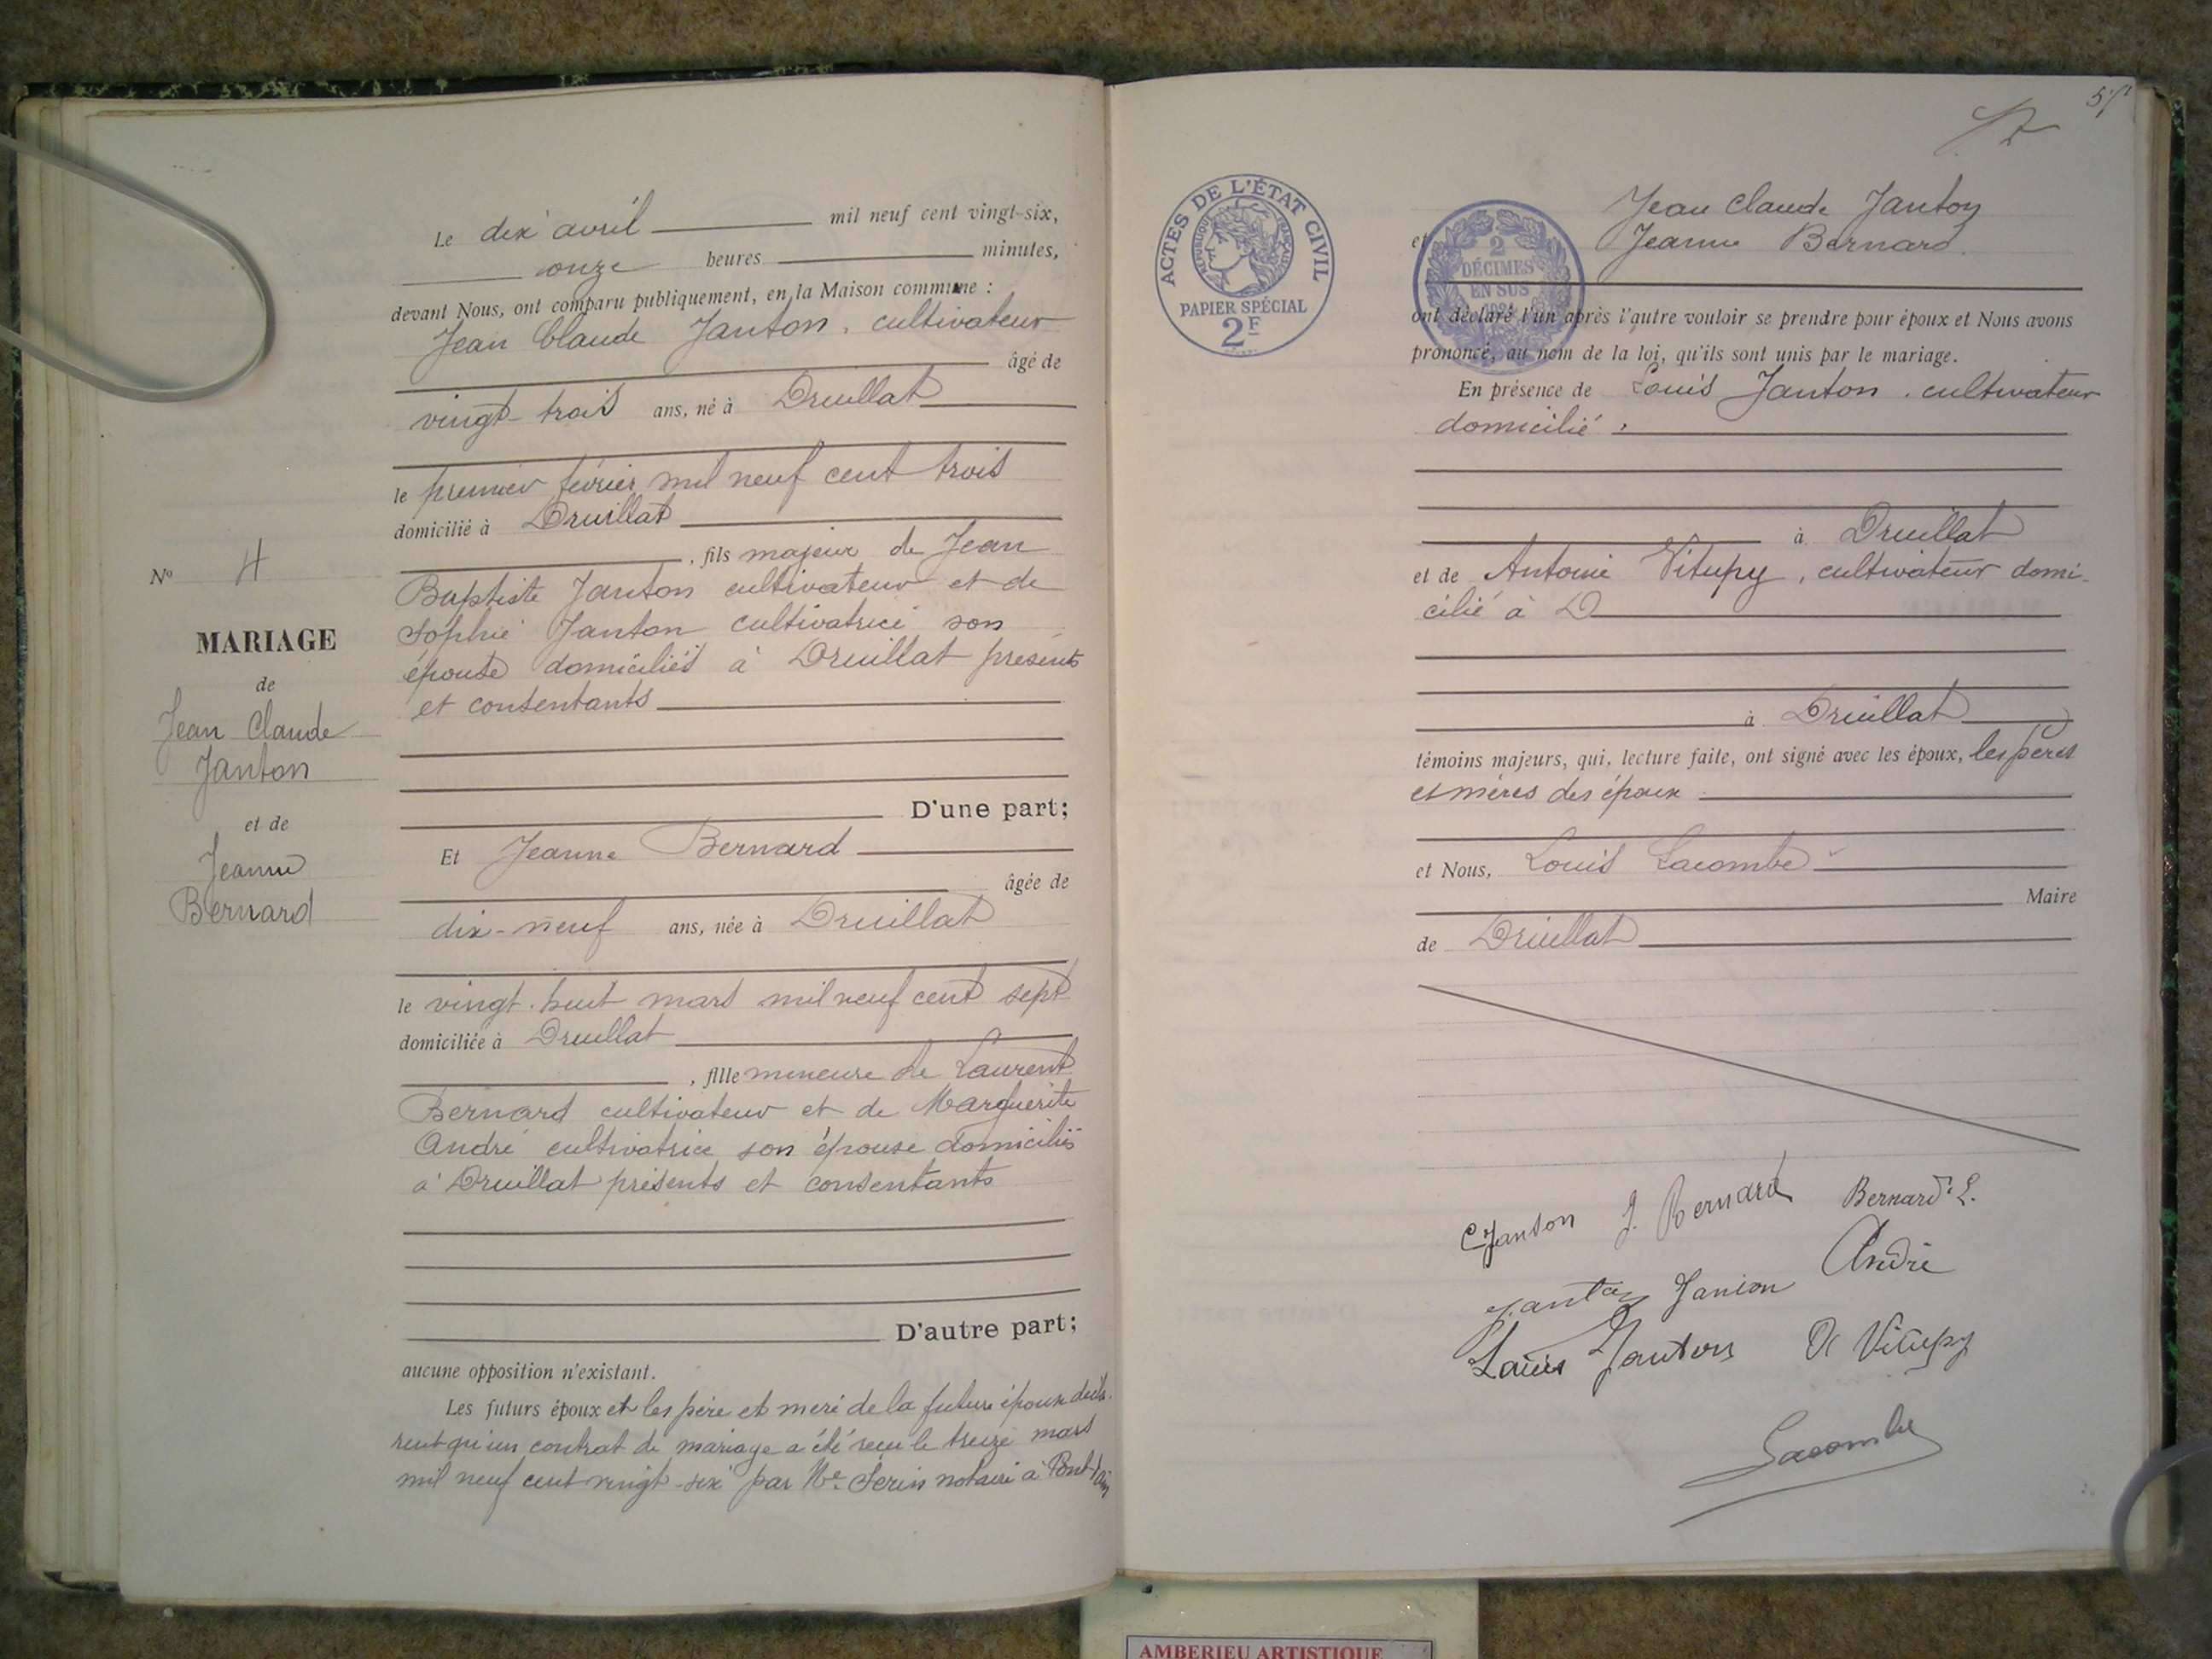 N° 4
MARIAGE
de
Jean Claude
Janton
et de
Jeanne
Bernard
Le dix avril mil neuf cent vingt-six,
onze heures minutes,
devant Nous, ont comparu publiquement, en la Maison commune :
Jean Claude Janton, cultivateur
âgé de
vingt-trois ans, né à Druillat
le premier février mil neuf cent trois
domicilié à Druillat
, fils majeur de Jean
Baptiste Janton cultivateur et de
Sophie Janton cultivatrice son
épouse domiciliés à Druillat présents
et consentants
D'une part;
Et Jeanne Bernard
âgée de
dix-neuf ans, née à Druillat
le vingt-huit mars mil neuf cent sept
domiciliée à Druillat
, fille mineure de Laurent
Bernard cultivateur et de Marguerite
André cultivatrice son épouse domiciliés
à Druillat présents et consentants
D'autre part;
aucune opposition n'existant.
Les futurs époux et les père et mère de la future épouse décla-
rent qu'un contrat de mariage a été reçu le treize mars
mil neuf cent vingt-six par Me Serin notaire à Pont d'Ain
57
ACTES DE L'ÉTAT CIVIL
RÉPUBLIQUE FRANÇAISE
PAPIER SPÉCIAL
2F
2
DÉCIMES
EN SUS
Jean Claude Janton
et Jeanne Bernard
ont déclaré l'un après l'autre vouloir se prendre pour époux et Nous avons
prononcé, au nom de la loi, qu'ils sont unis par le mariage.
En présence de Louis Janton, cultivateur
domicilié,
à Druillat
et de Antoine Vitupy, cultivateur domi-
cilié à D
à Druillat
témoins majeurs, qui, lecture faite, ont signé avec les époux, les pères
et mères des époux
et Nous, Louis Lacombe
Maire
de Druillat
C Janton J. Bernard Bernard L.
André
Janton Janton
Louis Janton A Vitupy
Lacombe
AMBERIEU ARTISTIQUE